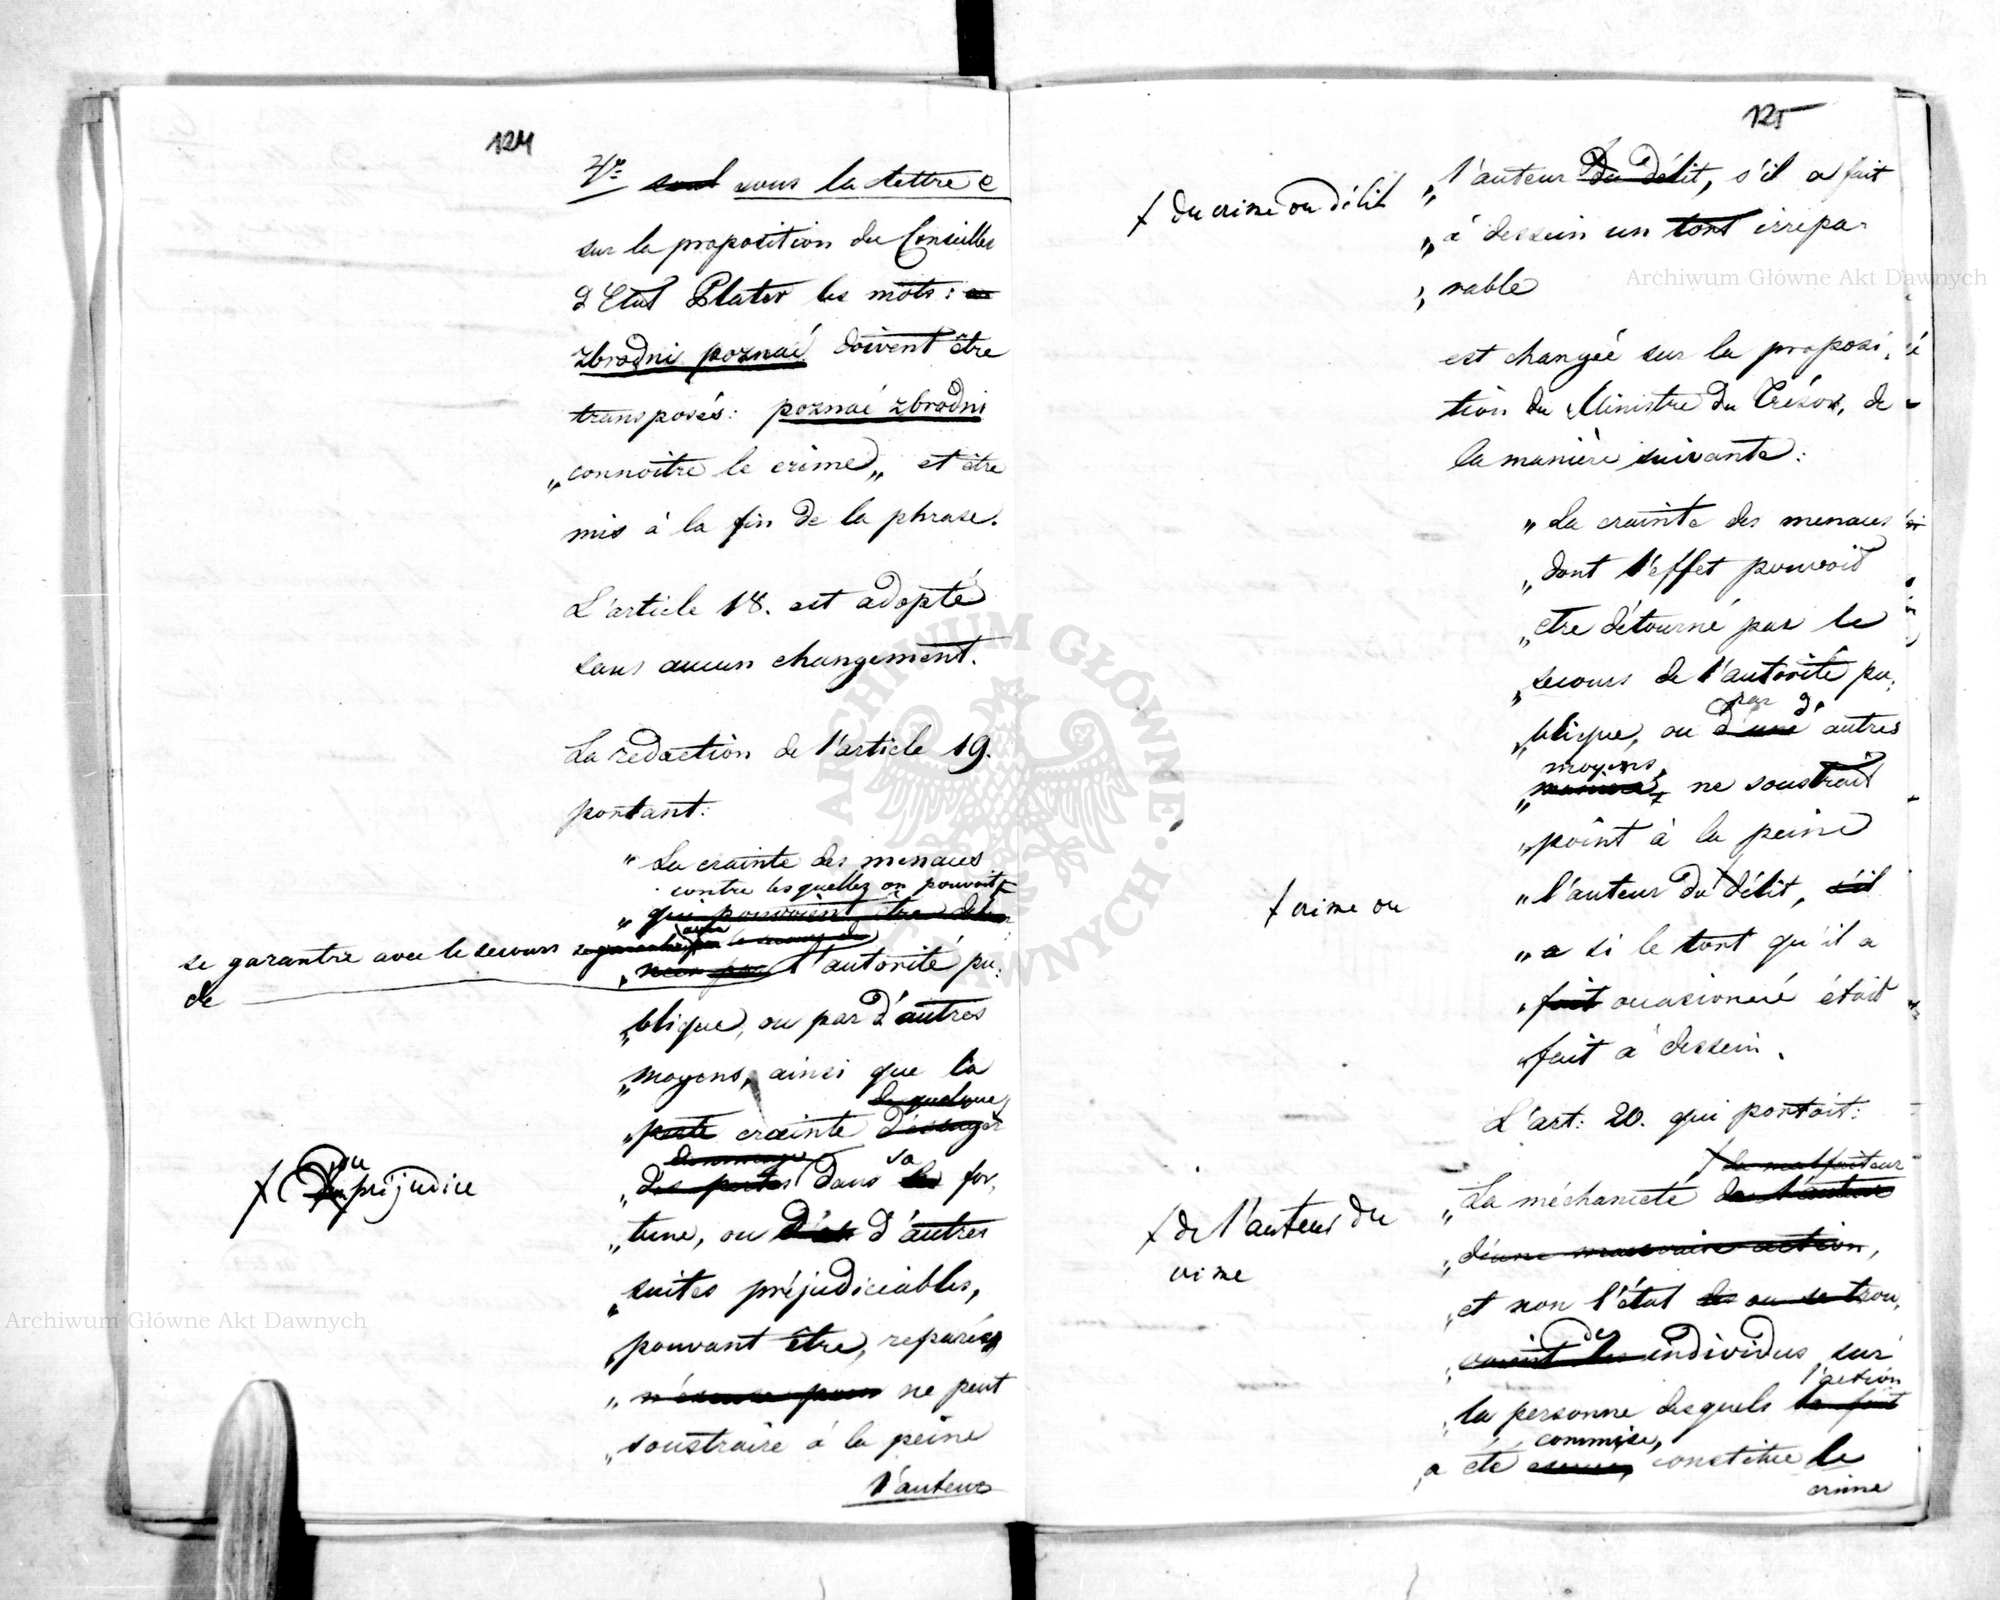 124
4º sous la lettre e
sur la proposition du Conseiller
d'Etat Plater les mots:
zbrodni poznać doivent être
transposés: poznać zbrodni
„connoitre le crime„ et être
mis à la fin de la phrase.
L'article 18. est adopté
sans aucun changement.
La redaction de l'article 19.
portant:
" La crainte des menaces
contre lesquelles on pouvoit
" qui pouvoient être détour
se garantre avec le secours
de
„ l'autorité pu:
„blique, ou par d'autres
„moyens, ainsi que la
de quelque
„perte crainte d'essuyer
dommage
ou préjudice
„des pertes dans sa for,
„tune, ou d'autres
„suites préjudiciables,
„pouvant être, reparées,
„ ne peut
„soustraire à la peine
l'auteur
125
„l'auteur du délit, s'il a fait
+ du crime ou délit
„à dessein un tort irrépa-
„rable
est changée sur la proposi,
tion du Ministre du Trésor, de
la manière suivante:
„La crainte des menaces
„dont l'effet pouvoit
„etre détourné par le
„secours de l'autorité pu,
par d'
„blique, ou d'une autres
moyens,
„manière, ne soustrait
„point à la peine
„l'auteur du délit, s'il
+ crime ou
„a si le tort qu'il a
„fait occasionné étoit
„fait à dessein.
L'art: 20. qui portoit:
+ du malfaiteur
„La méchanceté de l'auteur
+ de l'auteur du
crime
„d'une mauvaise action,
„et non l'état où se trou,
de
„voient les individus sur
l'action
„la personne desquels le fait
commise,
„a été constitue le
crime
Archiwum Główne Akt Dawnych
Archiwum Główne Akt Dawnych
ARCHIWUM GŁÓWNE AKT DAWNYCH